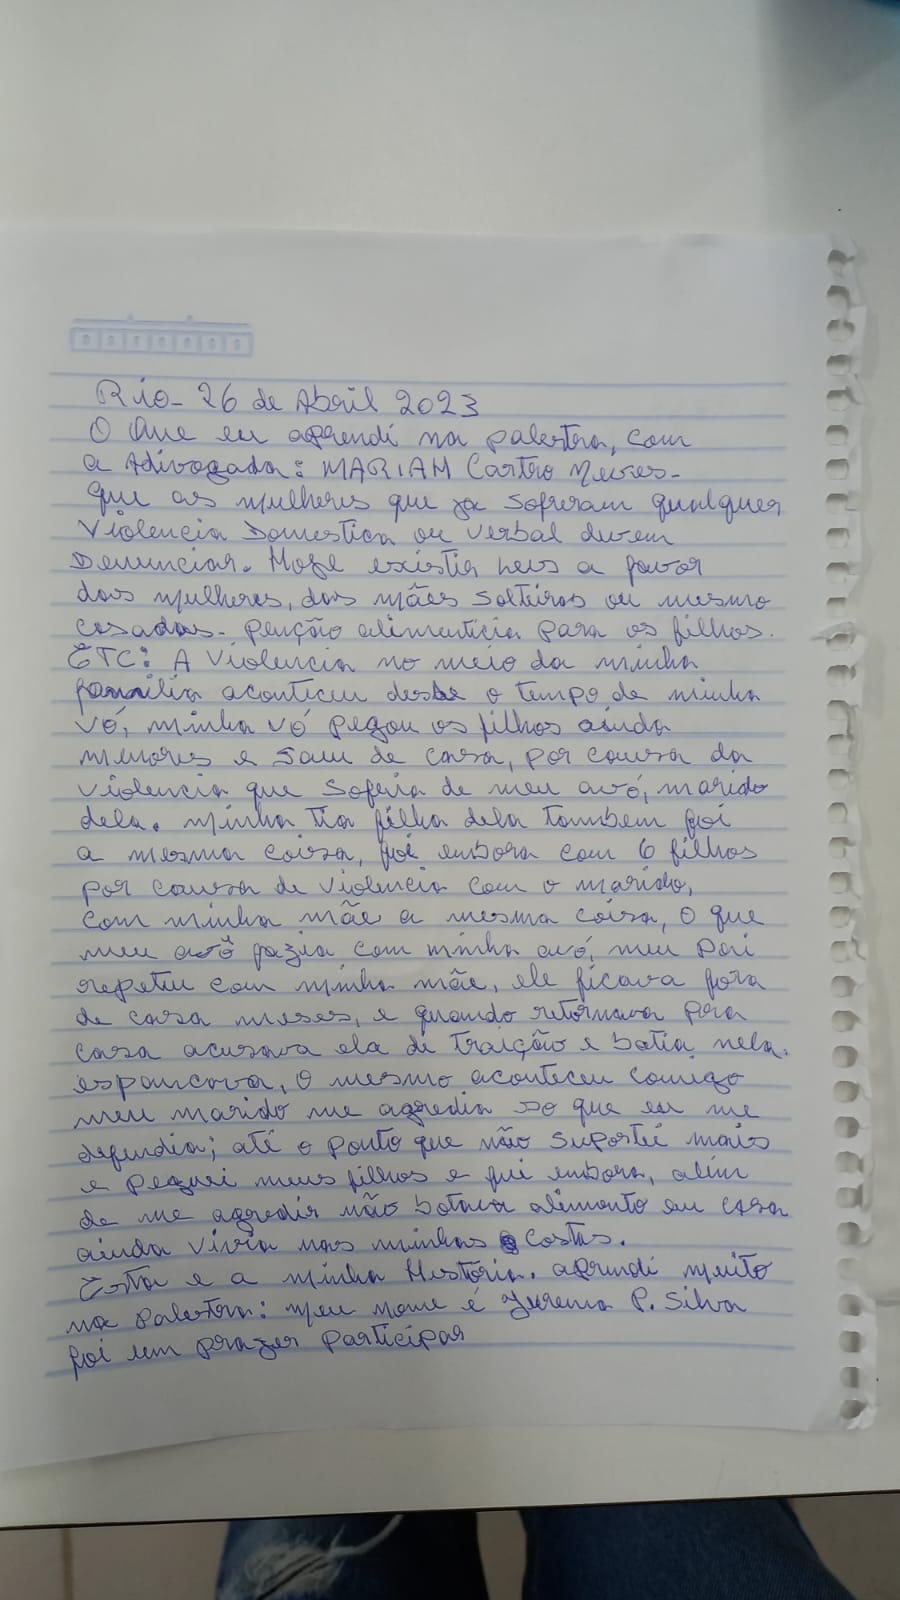 Rio- 26 de Abril 2023
O Que eu aprendi na palestra, com
a Adivogada: MARIAM Castro Neves-
que as mulheres que ja sofreram qualquer
Violencia Domestica ou verbal devem
Denunciar. Hoje existir leis a favor
das mulheres, das mães solteiras ou mesmo
casadas- penção alimentícia para os filhos.
ETC: A Violencia no meio da minha
família aconteceu desde o tempo de minha
vó, minha vó pegou os filhos ainda
menores e saiu de casa, por causa da
violencia que Sofria de meu avô, marido
dela. minha tia filha dela tambem foi
a mesma coisa, foi embora com 6 filhos
por causa de violencia com o marido,
com minha mãe a mesma coisa, O que
meu avô fazia com minha avó, meu pai
repetiu com minha mãe, ele ficava fora
de casa meses, e quando retornava pra
casa acusava ela de traição e batia nela.
espancava, O mesmo aconteceu comigo
meu marido me agredia so que eu me
defendia; até o ponto que não suportei mais
e peguei meus filhos e fui embora, alem
de me agredir não botava alimento em casa
ainda vivia nas minhas costas.
Esta e a minha História. aprendi muito
na palestra: meu nome é Jurema P. Silva
foi um prazer participar